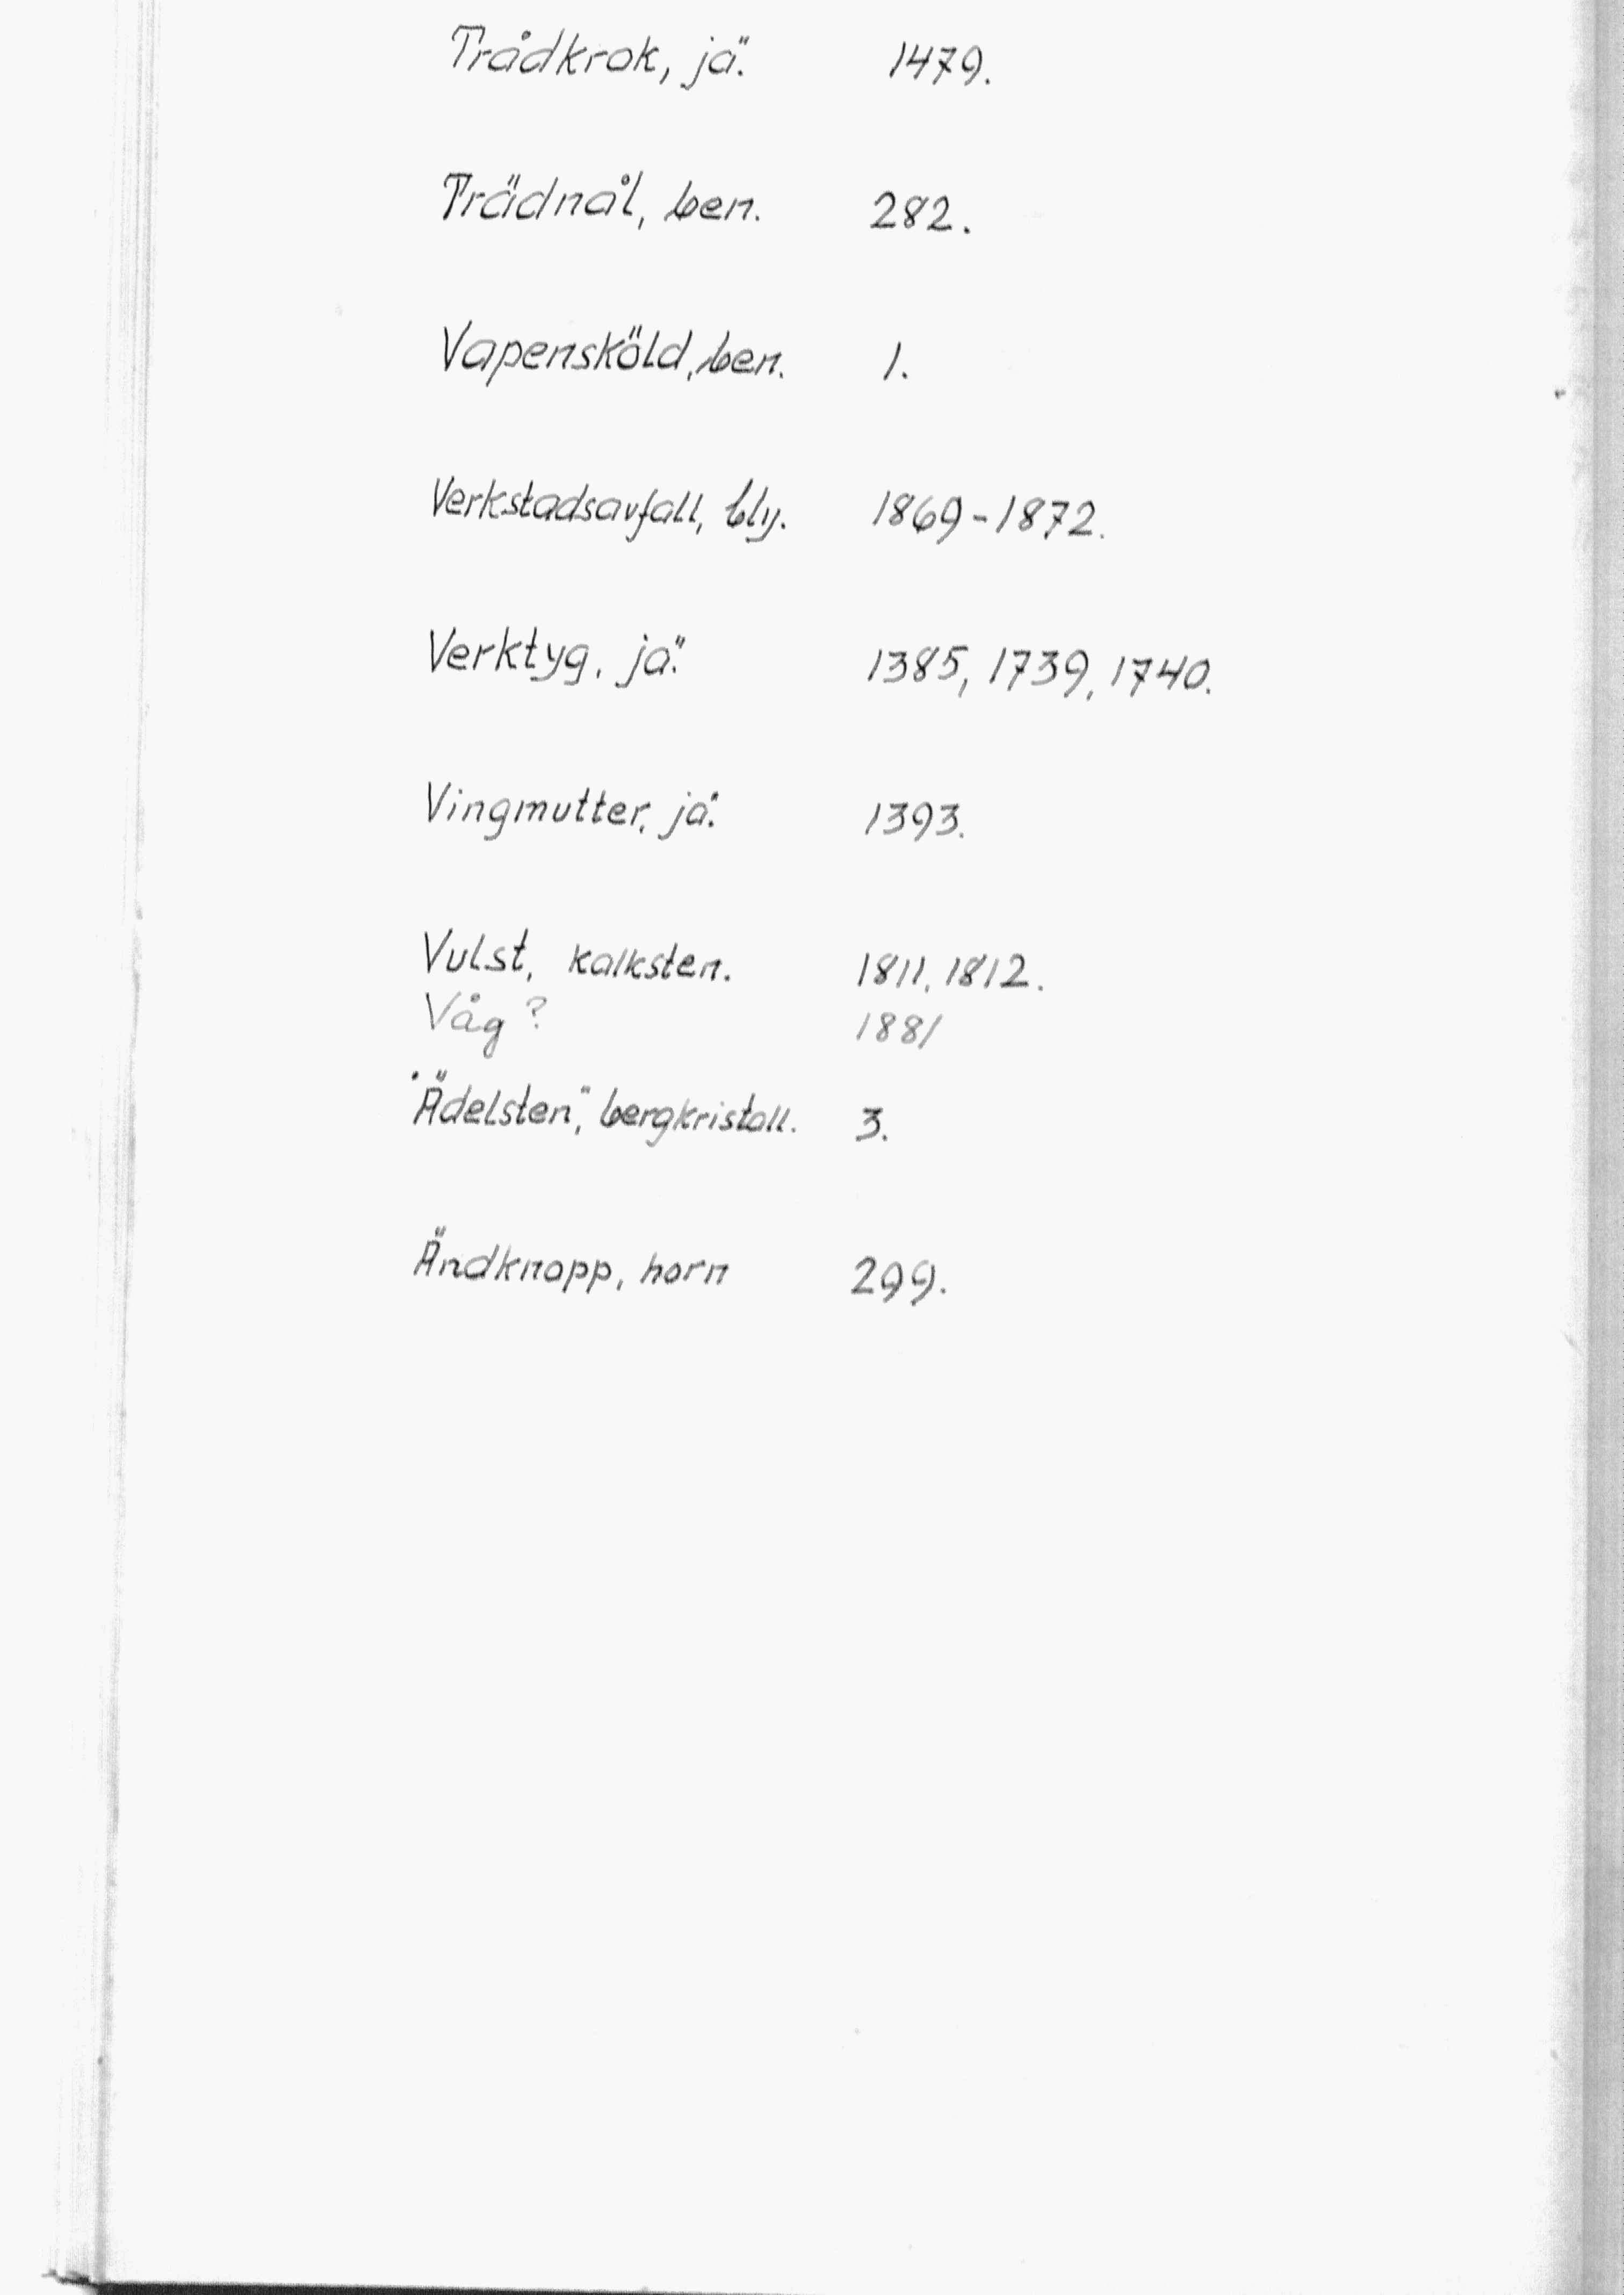 Trådkrok, jä. 1479.
Trädnål, ben. 282.
Vapensköld, ben. 1.
Verkstadsavfall, bly. 1869-1872.
Verktyg, jä. 1385, 1739, 1740.
Vingmutter, jä. 1393.
Vulst, kalksten. 1811, 1812.
Våg? 1881
"Ädelsten", bergkristall. 3.
Ändknopp, horn 299.